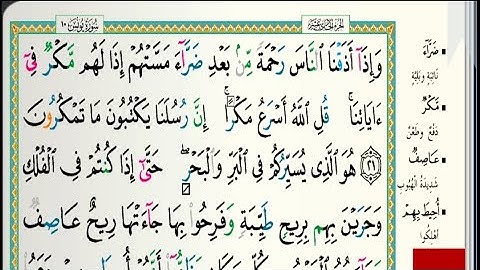 الجزء الحادي عشر
سورة يونس ١٠
وَإِذَآ أَذَقْنَا ٱلنَّاسَ رَحْمَةً مِّنۢ بَعْدِ ضَرَّآءَ مَسَّتْهُمْ إِذَا لَهُم مَّكْرٌ فِىٓ
ءَايَاتِنَا ۚ قُلِ ٱللَّهُ أَسْرَعُ مَكْرًا ۚ إِنَّ رُسُلَنَا يَكْتُبُونَ مَا تَمْكُرُونَ
٢١ هُوَ ٱلَّذِى يُسَيِّرُكُمْ فِى ٱلْبَرِّ وَٱلْبَحْرِ ۖ حَتَّىٰٓ إِذَا كُنتُمْ فِى ٱلْفُلْكِ
وَجَرَيْنَ بِهِم بِرِيحٍ طَيِّبَةٍ وَفَرِحُوا۟ بِهَا جَآءَتْهَا رِيحٌ عَاصِفٌ
ضَرَّآءَ
نَائِبَةٍ وَبَلِيَّةٍ
مَكْرٌ
دَفْعٌ وَطَعْنٌ
عَاصِفٌ
شَدِيدَةُ الْهُبُوبِ
أُحِيطَ بِهِمْ
أُهْلِكُوا